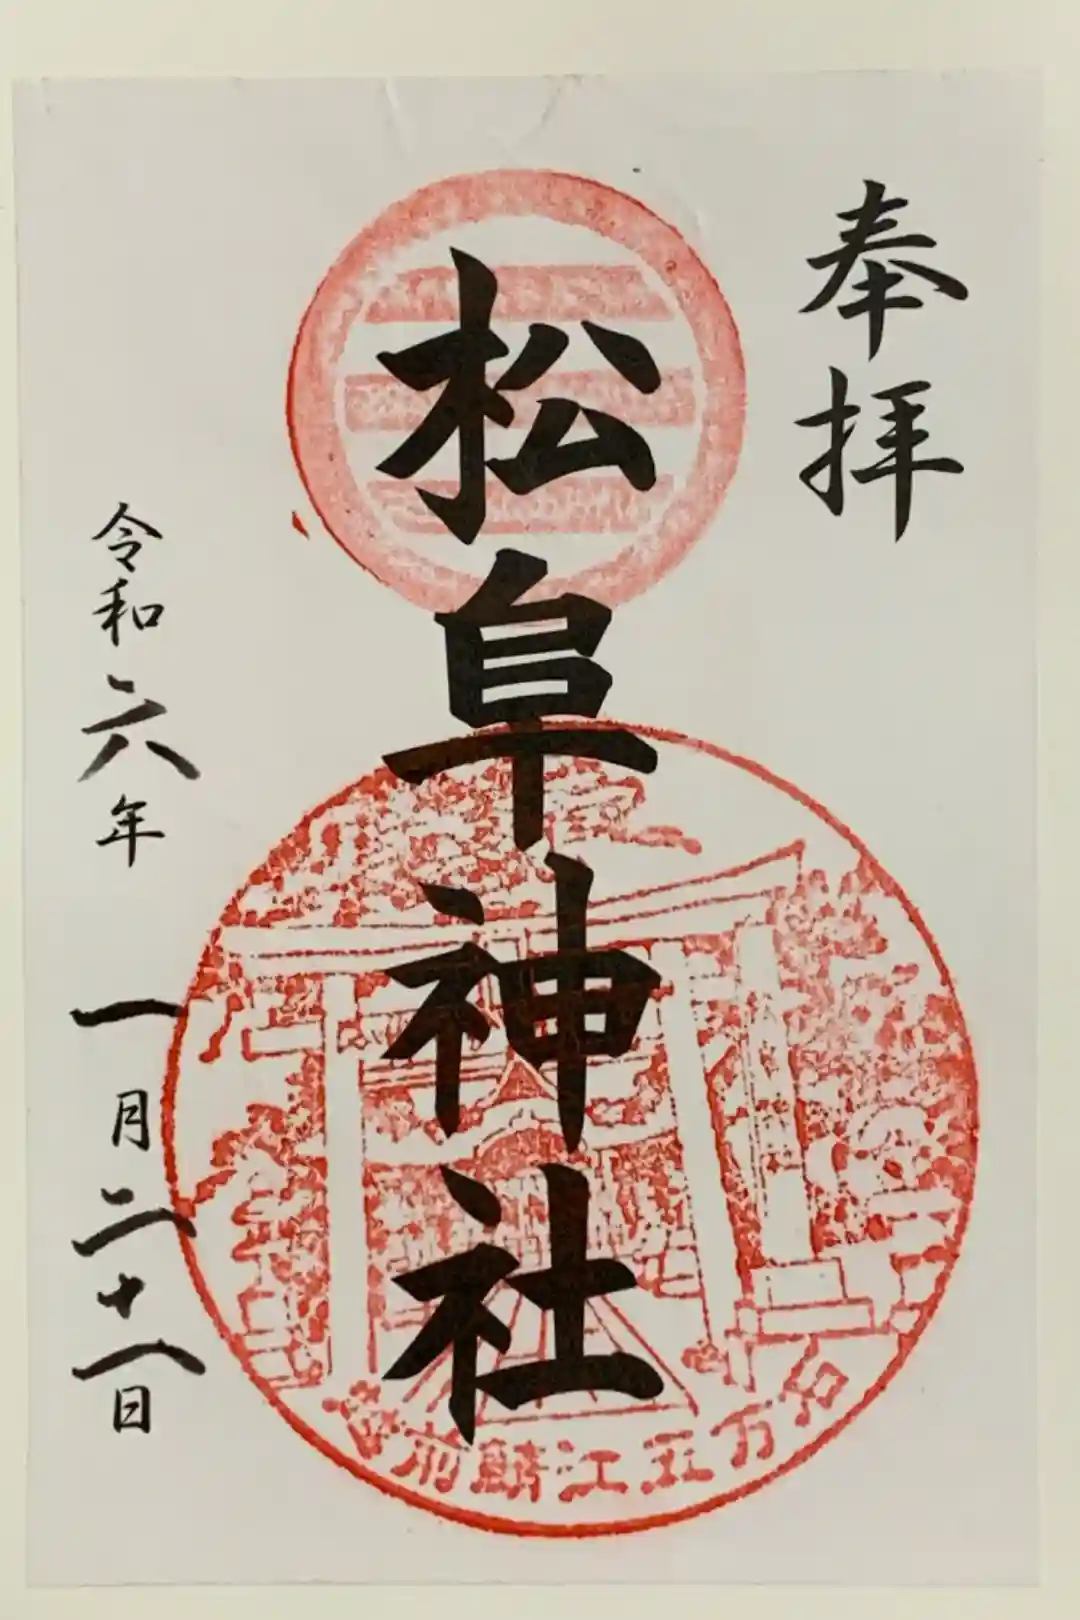 奉拝
松阜神社
令和六年一月二十八日
越前鯖江五万石